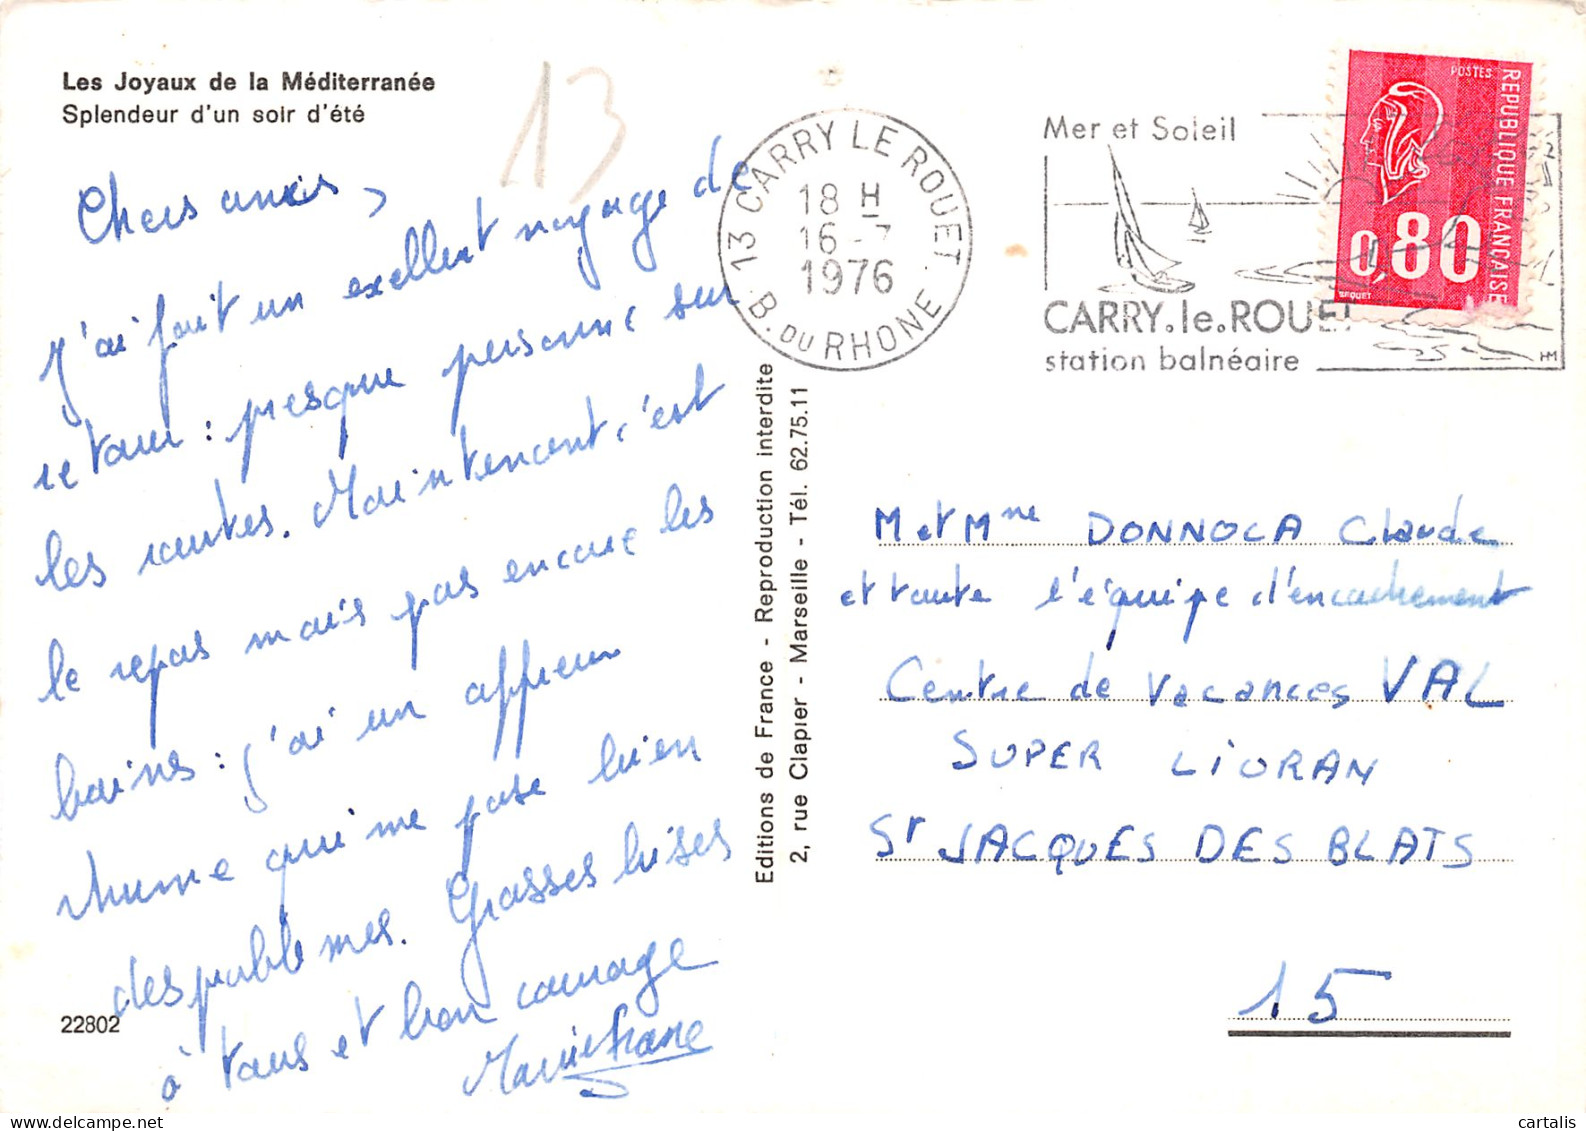 Les Joyaux de la Méditerranée
Splendeur d'un soir d'été
13
Chers amis,
J'ai fait un excellent voyage de
retour : presque personne sur
les routes. Maintenant c'est
le repas mais pas encore les
bains : j'ai un affreux
rhume qui me pose bien
des problèmes. Grosses bises
à tous et bon courage
Mariefrance
22802
Editions de France - Reproduction interdite
2, rue Clapier - Marseille - Tél. 62.75.11
13 CARRY LE ROUET
18 H
16 - 7
1976
B. DU RHONE
Mer et Soleil
CARRY.le.ROUET
station balnéaire
HM
POSTES
REPUBLIQUE FRANÇAISE
0,80
BEQUET
M et Mme DONNOLA Claude
et toute l'équipe d'encadrement
Centre de Vacances VAL
SUPER LIORAN
St JACQUES DES BLATS
15
cartalis